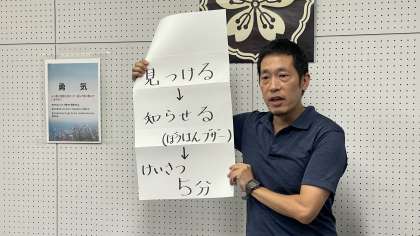 勇気
見つける
↓
知らせる
(ぼうはんブザー)
↓
けいさつ
5分